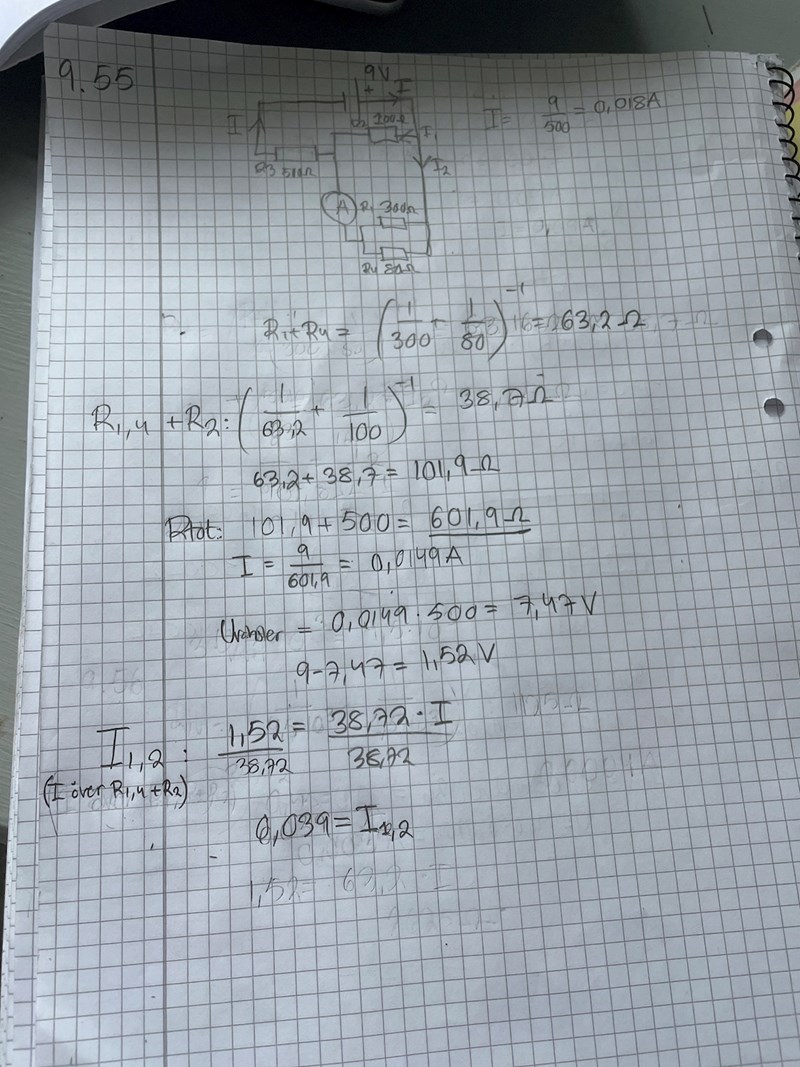 9.55
9V
+ I
I = 9/500 = 0,018A
I
I₁
I₂
R3 510Ω
A R₁ 300Ω
R₄ 80Ω
R₁+R₄ = (1/300 + 1/80)⁻¹ = 63,2 Ω
R₁,₄ + R₂: (1/63,2 + 1/100)⁻¹ = 38,7 Ω
63,2 + 38,7 = 101,9 Ω
Rtot: 101,9 + 500 = 601,9 Ω
I = 9/601,9 = 0,0149A
= 0,0149 · 500 = 7,47 V
9 - 7,47 = 1,52 V
I₁,₂ : 1,52/38,72 = 38,72 · I/38,72
(I över R₁,₄ + R₂)
0,039 = I₁,₂
1,52 = 63,2 · I